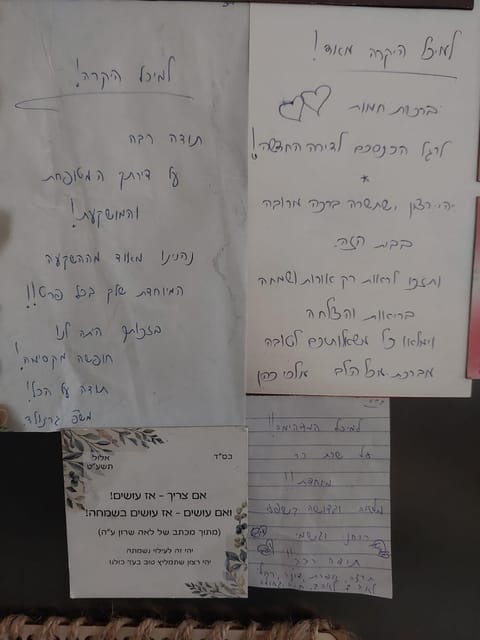 למיכל היקרה!
תודה רבה
על דירתך המטופחת
והמושקעת!
נהנינו מאוד מההשקעה
המיוחדת שלך בכל פרט!!
בזכותך היתה לנו
חופשה מקסימה!
תודה על הכל!
משפ'
למיכל היקרה מאוד!
ברכות חמות
לרגל הכנסכם לדירה החדשה!
*
יהי רצון שתשרה ברכה מרובה
בבית הזה.
ותזכו לראות רק אורות ושמחה
בריאות והצלחה
וימלאו כל משאלותכם לטובה
מברכת מכל הלב אלכי כהן
אלול
תשע"ט
בס"ד
אם צריך - אז עושים!
ואם עושים - אז עושים בשמחה!
(מתוך מכתב של לאה שרון ע"ה)
יהי זה לעילוי נשמתה
יהי רצון שתמליץ טוב בעד כולנו
בס"ד
למיכל המדהימה!!
על
!!
תודה רבה